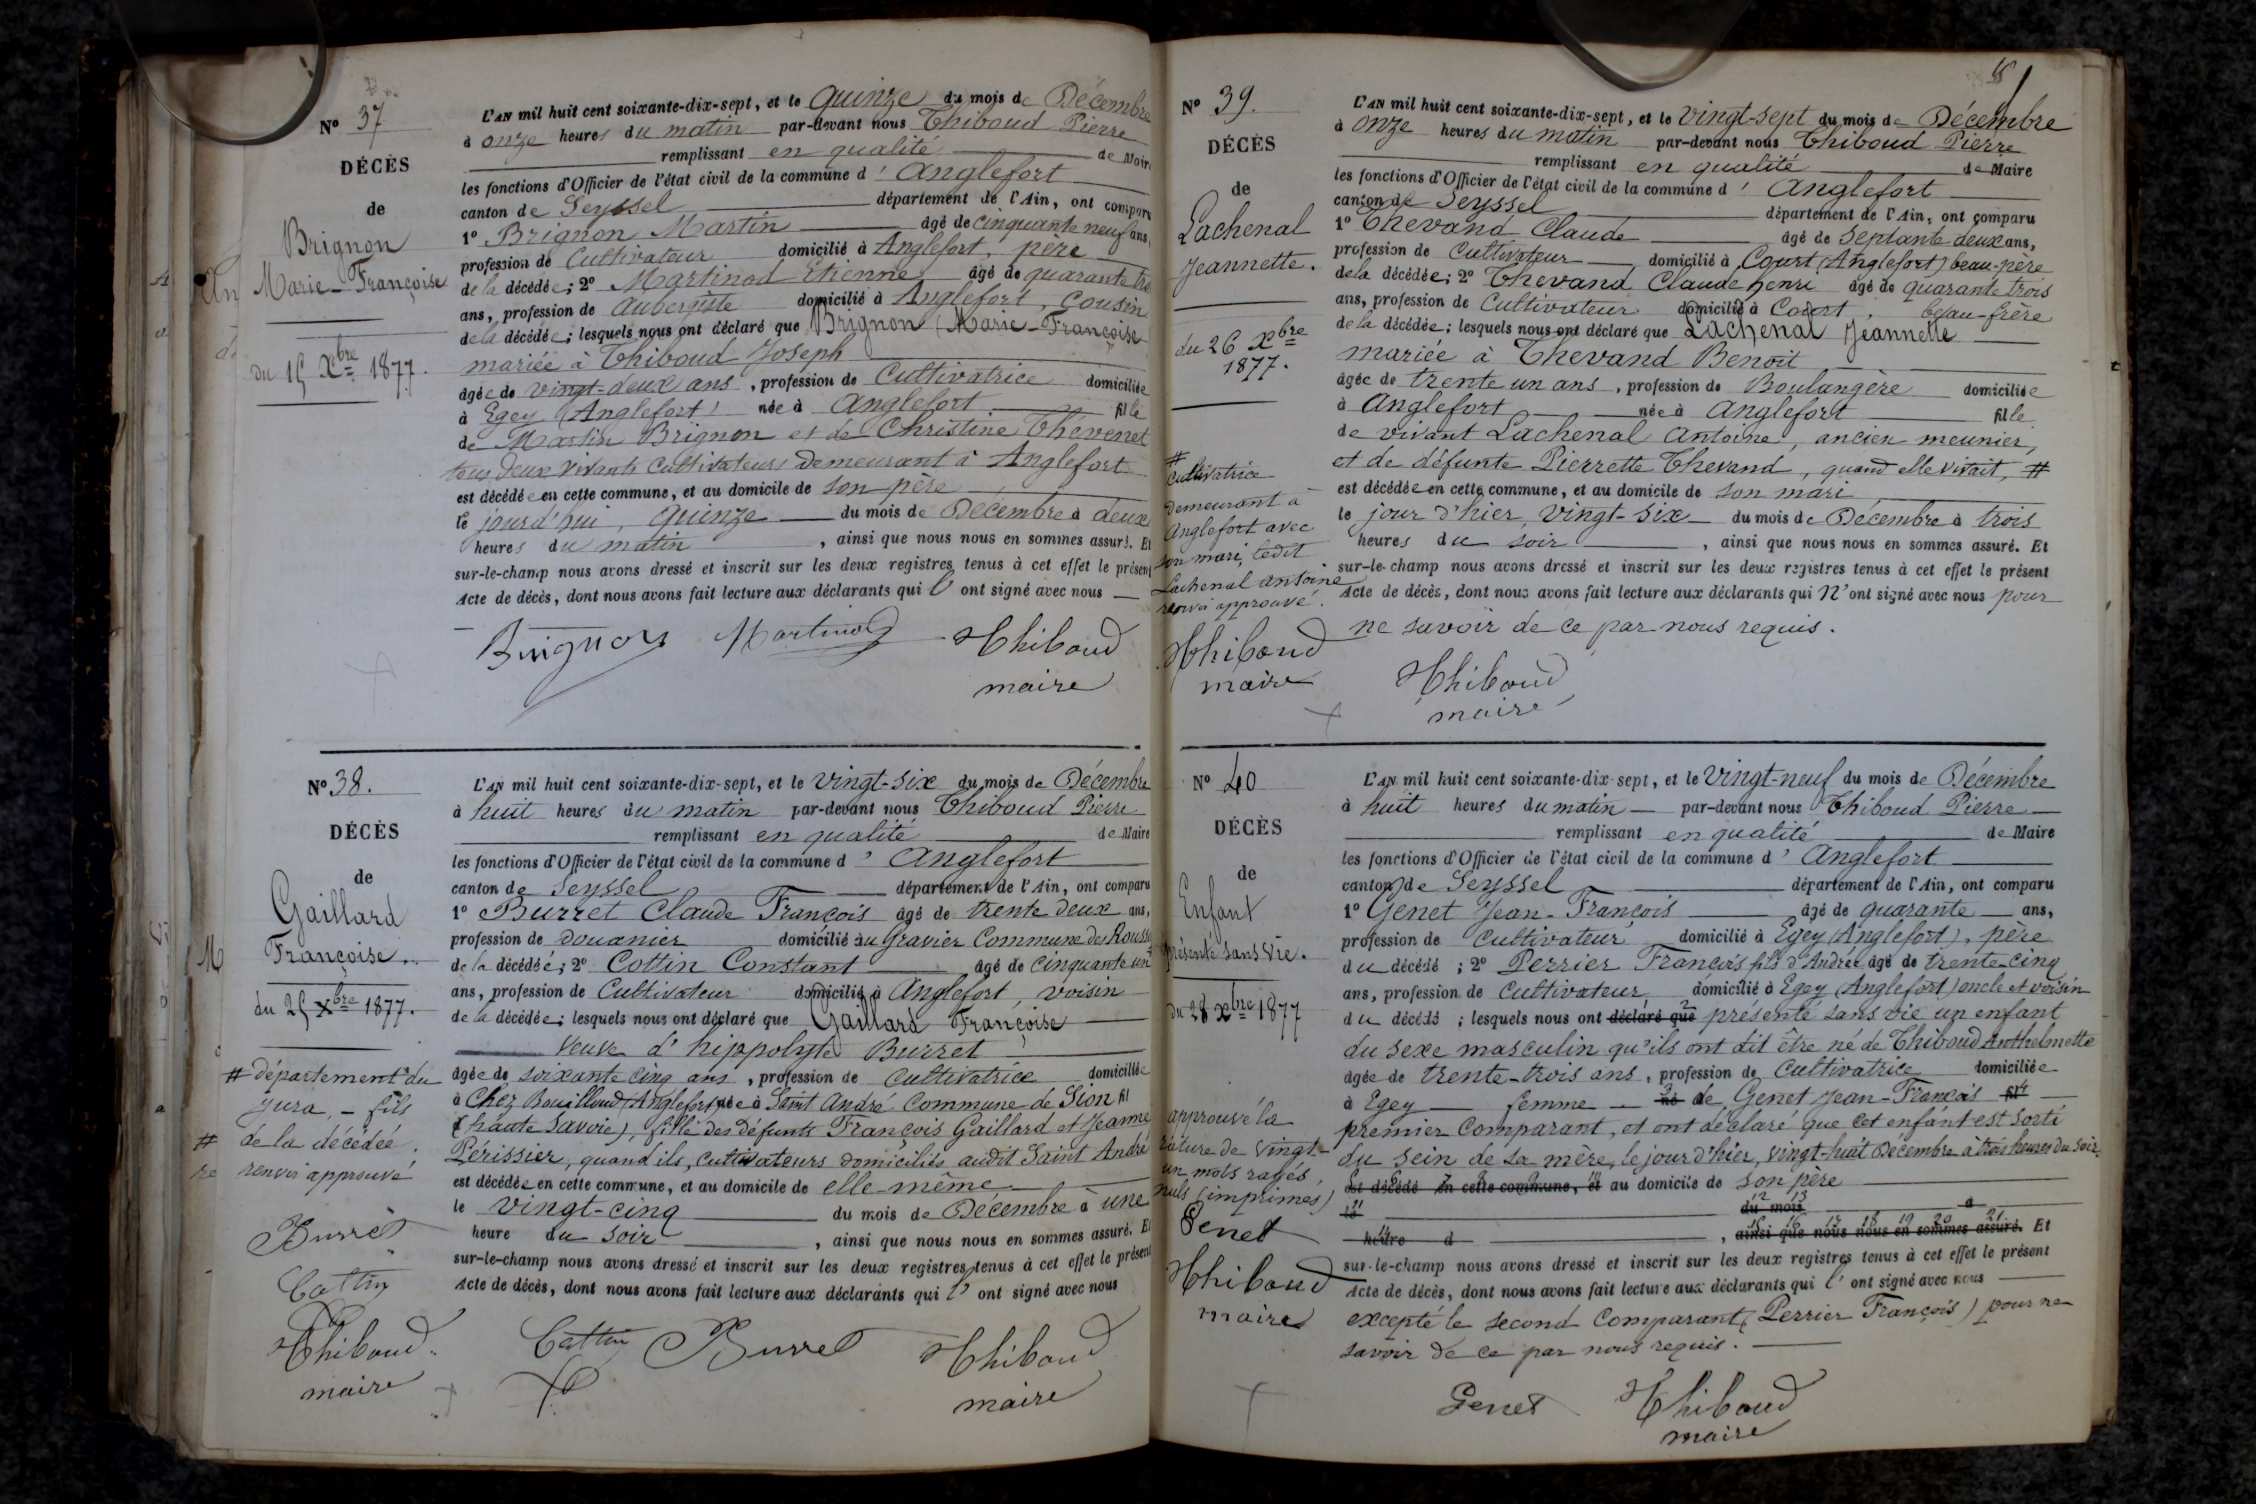 Nº 37
DÉCÈS
de
Brignon
Marie-Françoise
du 15 Xbre 1877.
L'AN mil huit cent soixante-dix-sept, et le quinze du mois de Décembre
à onze heures du matin par-devant nous Thiboud Pierre
remplissant en qualité de Maire
les fonctions d'Officier de l'état civil de la commune d'Anglefort
canton de Seyssel département de l'Ain, ont comparu
1º Brignon Martin âgé de cinquante neuf ans,
profession de Cultivateur domicilié à Anglefort, père
de la décédée; 2º Martinod Etienne âgé de quarante
ans, profession de aubergiste domicilié à Anglefort, cousin
de la décédée; lesquels nous ont déclaré que Brignon Marie-Françoise
mariée à Thiboud Joseph
âgée de vingt-deux ans, profession de Cultivatrice domiciliée
à Egey (Anglefort) née à Anglefort fille
de Martin Brignon et de Christine Thevenet
tous deux vivants cultivateurs demeurant à Anglefort
est décédée en cette commune, et au domicile de son père
le jourd'hui, quinze du mois de Décembre à deux
heures du matin, ainsi que nous nous en sommes assuré. Et
sur-le-champ nous avons dressé et inscrit sur les deux registres tenus à cet effet le présent
Acte de décès, dont nous avons fait lecture aux déclarants qui l'ont signé avec nous
Brignon Martinod Thiboud
maire
Nº 38.
DÉCÈS
de
Gaillard
Françoise.
du 25 Xbre 1877.
# département du
Jura, - fils
de la décédée.
renvoi approuvé
Burret
Cottin
Thiboud
maire
L'AN mil huit cent soixante-dix-sept, et le vingt-six du mois de Décembre
à huit heures du matin par-devant nous Thiboud Pierre
remplissant en qualité de Maire
les fonctions d'Officier de l'état civil de la commune d'Anglefort
canton de Seyssel département de l'Ain, ont comparu
1º Burret Claude François âgé de trente deux ans,
profession de douanier domicilié au Gravier Commune des Rousses
de la décédée; 2º Cottin Constant âgé de cinquante un
ans, profession de Cultivateur domicilié à Anglefort, voisin
de la décédée; lesquels nous ont déclaré que Gaillard Françoise
veuve d'hippolyte Burret
âgée de soixante cinq ans, profession de cultivatrice domiciliée
à Chez Bouilloud (Anglefort) née à Saint André Commune de Sion fil
(haute Savoie), fille des défunts François Gaillard et Jeanne
Périssier, quand ils, cultivateurs domiciliés audit Saint André
est décédée en cette commune, et au domicile de elle-même
le vingt-cinq du mois de Décembre à une
heure du soir, ainsi que nous nous en sommes assuré. Et
sur-le-champ nous avons dressé et inscrit sur les deux registres tenus à cet effet le présent
Acte de décès, dont nous avons fait lecture aux déclarants qui l'ont signé avec nous
Cottin Burret Thiboud
maire
Nº 39.
DÉCÈS
de
Lachenal
Jeannette.
du 26 Xbre
1877.
# cultivatrice
demeurant à
Anglefort avec
son mari, ledit
Lachenal antoine
renvoi approuvé.
Thiboud
maire
L'AN mil huit cent soixante-dix-sept, et le vingt-sept du mois de Décembre
à onze heures du matin par-devant nous Thiboud Pierre
remplissant en qualité de Maire
les fonctions d'Officier de l'état civil de la commune d'Anglefort
canton de Seyssel département de l'Ain, ont comparu
1º Thevand Claude âgé de septante deux ans,
profession de Cultivateur domicilié à Court (Anglefort) beau-père
de la décédée; 2º Thevand Claude henri âgé de quarante trois
ans, profession de Cultivateur domicilié à Court, beau-frère
de la décédée; lesquels nous ont déclaré que Lachenal Jeannette
mariée à Thevand Benoit
âgée de trente un ans, profession de Boulangère domiciliée
à Anglefort née à Anglefort fille
de vivant Lachenal Antoine, ancien meunier,
et de défunte Pierrette Thevand, quand elle vivait, #
est décédée en cette commune, et au domicile de son mari
le jour d'hier, vingt-six du mois de Décembre à trois
heures du soir, ainsi que nous nous en sommes assuré. Et
sur-le-champ nous avons dressé et inscrit sur les deux registres tenus à cet effet le présent
Acte de décès, dont nous avons fait lecture aux déclarants qui n'ont signé avec nous pour
ne savoir de ce par nous requis.
Thiboud
maire
Nº 40
DÉCÈS
de
Enfant
présenté sans vie.
du 28 Xbre 1877
approuvé la
rature de vingt-
un mots rayés
nuls (imprimés)
Genet
Thiboud
maire
L'AN mil huit cent soixante-dix-sept, et le vingt-neuf du mois de Décembre
à huit heures du matin par-devant nous Thiboud Pierre
remplissant en qualité de Maire
les fonctions d'Officier de l'état civil de la commune d'Anglefort
canton de Seyssel département de l'Ain, ont comparu
1º Genet Jean-François âgé de quarante ans,
profession de Cultivateur domicilié à Egey (Anglefort), père
du décédé; 2º Perrier François fils d'André âgé de trente-cinq
ans, profession de Cultivateur domicilié à Egey (Anglefort) oncle et voisin
du décédé; lesquels nous ont déclaré que présenté sans vie un enfant
du sexe masculin qu'ils ont dit être né de Thiboud Anthelmette
âgée de trente-trois ans, profession de Cultivatrice domiciliée
à Egey femme né de Genet Jean-François fil
premier Comparant, et ont déclaré que cet enfant est sorti
du sein de sa mère, le jour d'hier, vingt-huit Décembre à trois heures du soir.
est décédé en cette commune, et au domicile de son père
le du mois à
heure d, ainsi que nous nous en sommes assuré. Et
sur-le-champ nous avons dressé et inscrit sur les deux registres tenus à cet effet le présent
Acte de décès, dont nous avons fait lecture aux déclarants qui l'ont signé avec nous
excepté le second Comparant (Perrier François) pour ne
savoir de ce par nous requis.
Genet Thiboud
maire